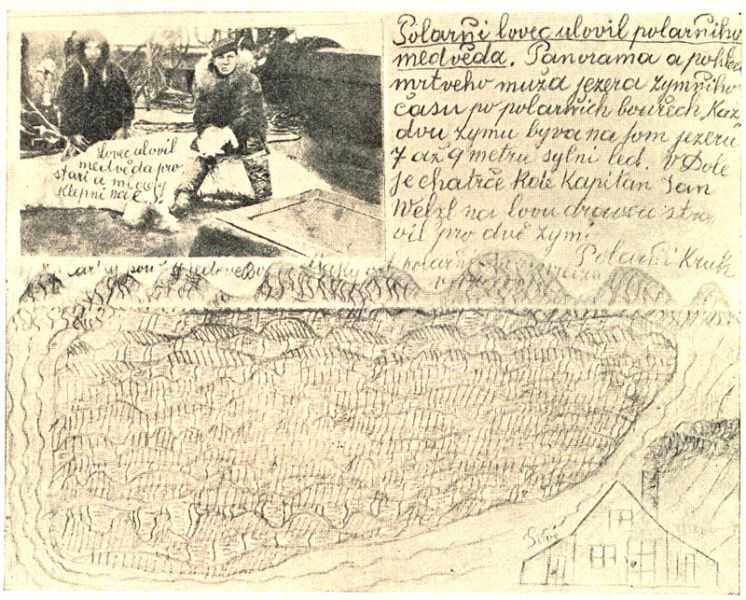 Polarňi lovec ulovil polarňiho
medvěda. Panorama a pohled
mrtveho muža jezera zymňiho
času po polarňich bouřech. Kaž
dou zymu byva na tom jezeru
7 až 9 metru sylni led. v Dole
je chatrče kde Kapitan Jan
Welzl na lovu dravcu stra
vil pro dvě zymi
Polarňi Kruh
Lovec ulovil
medvěda pro
stari a mlady
Klepni